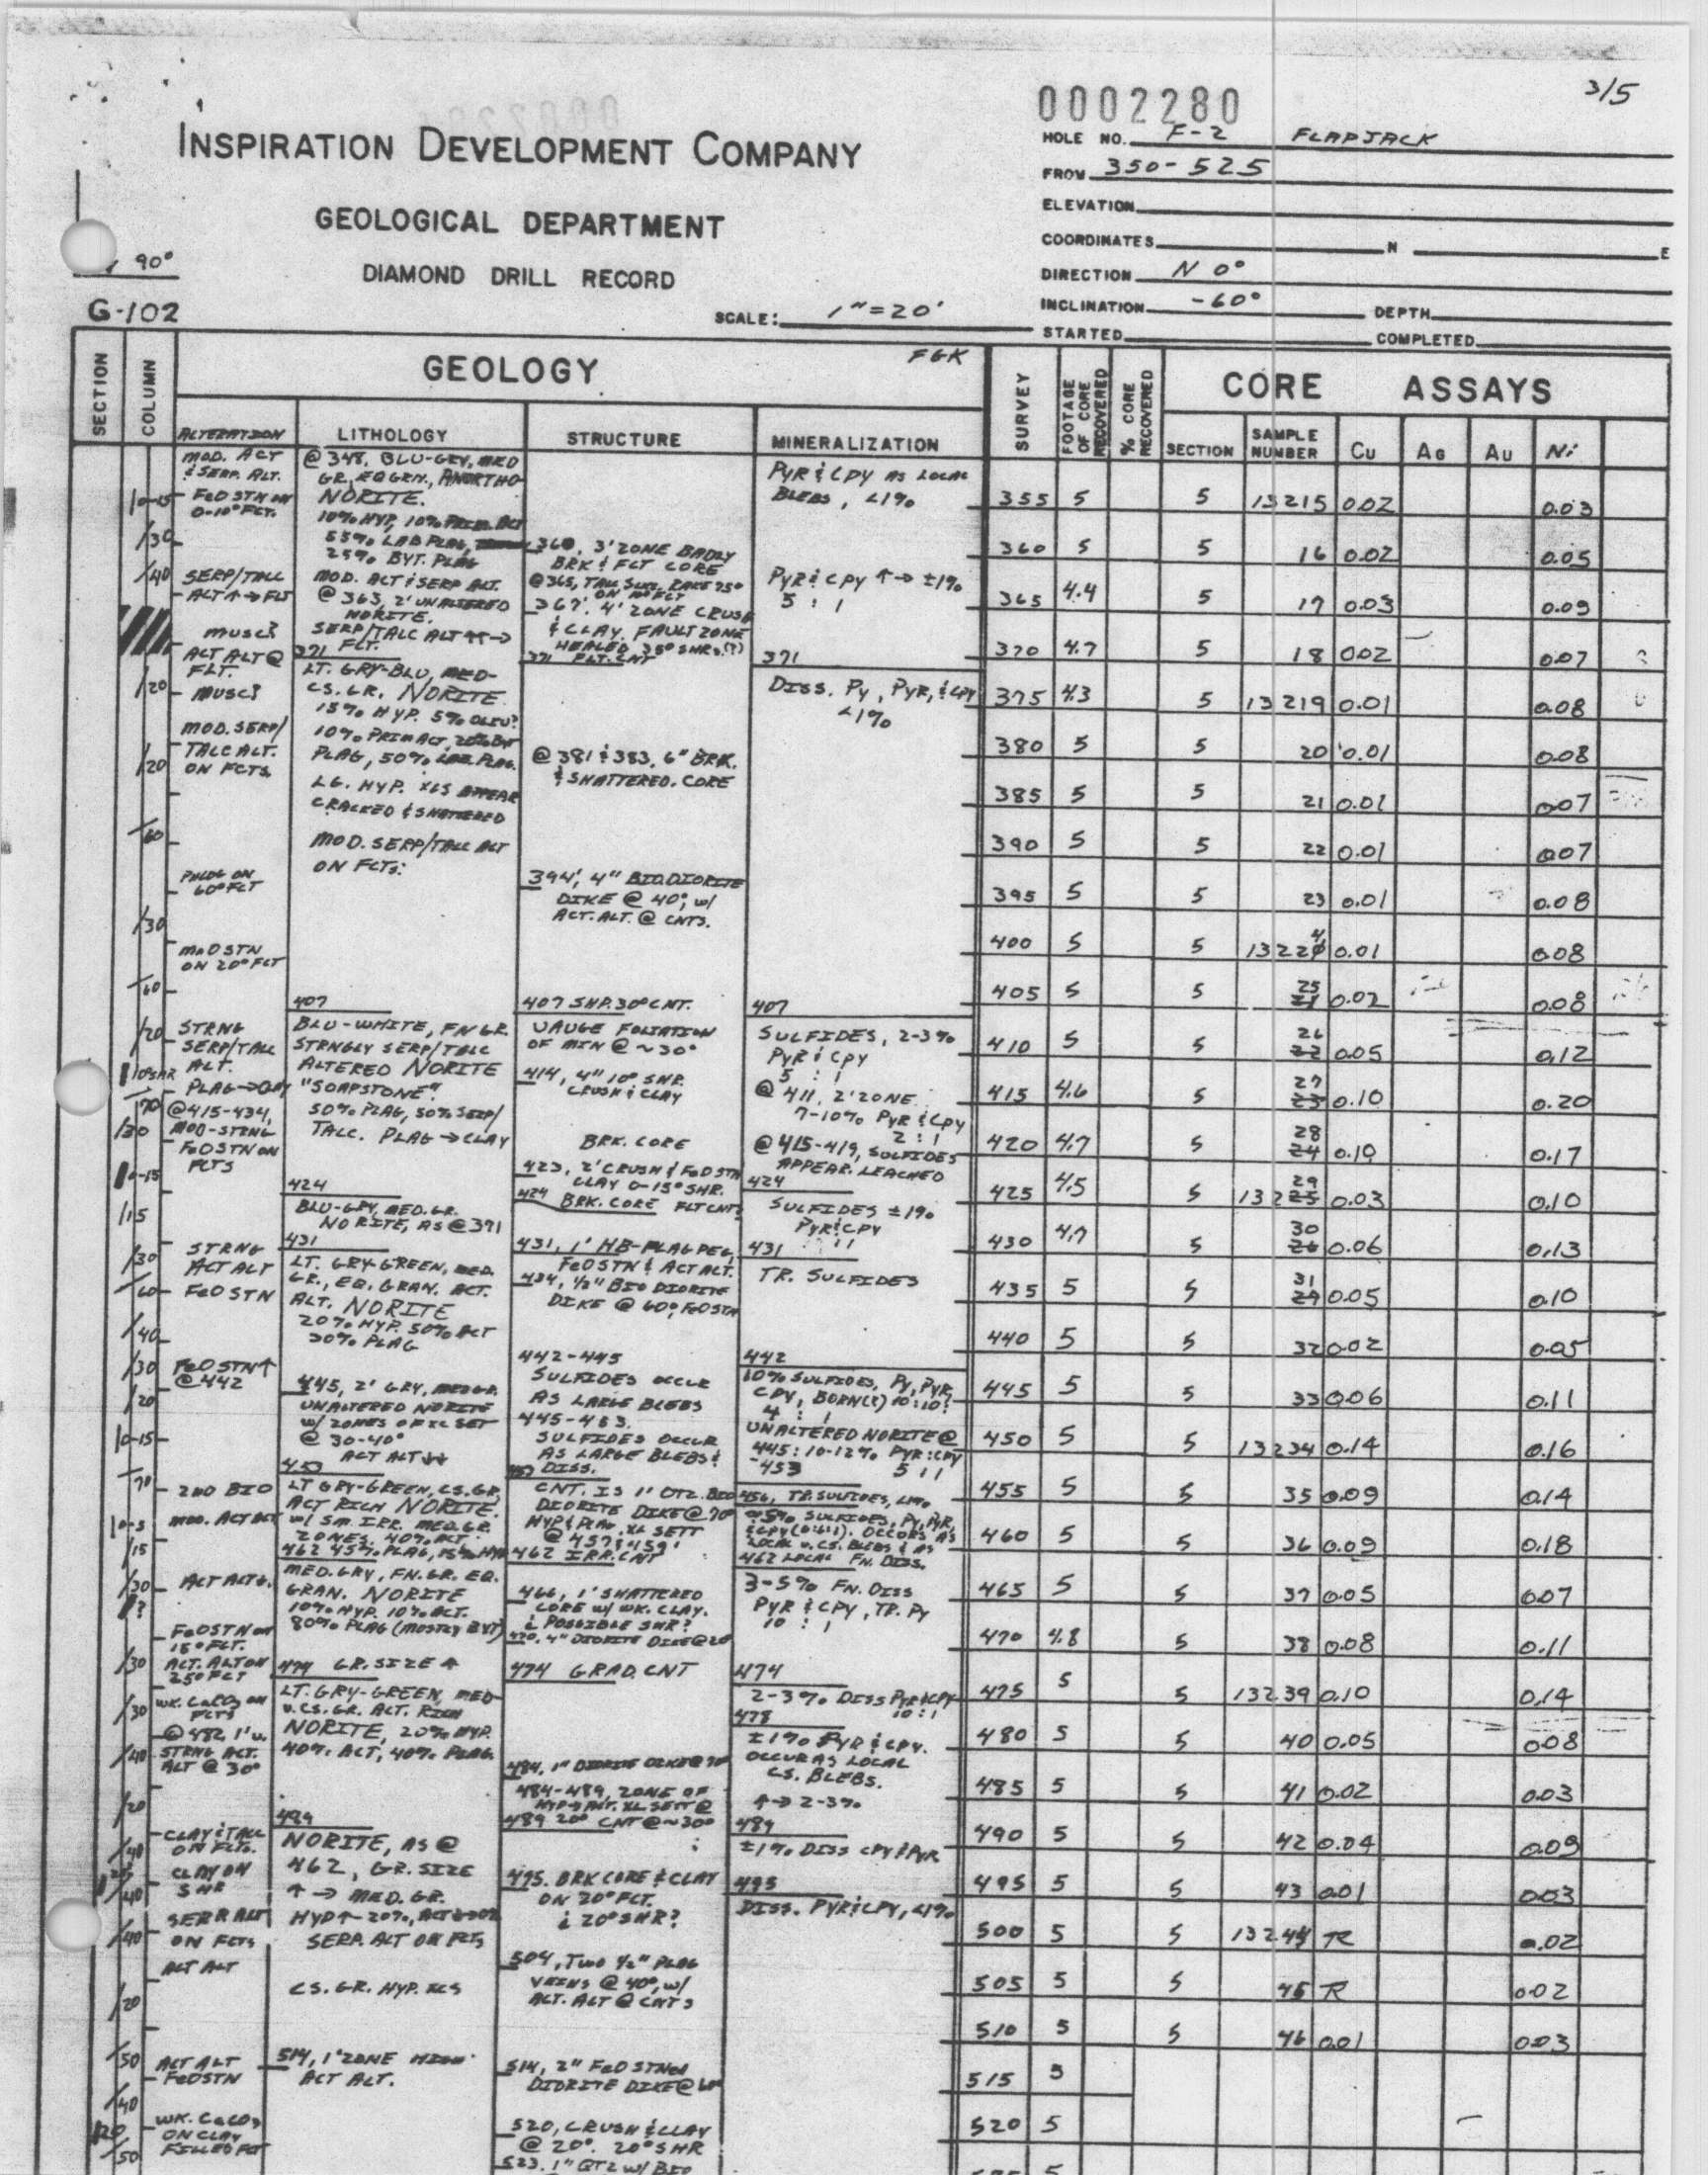 3/5
0002280
INSPIRATION DEVELOPMENT COMPANY
HOLE NO. F-2 FLAPJACK
FROM 350-525
GEOLOGICAL DEPARTMENT
ELEVATION
COORDINATES N E
90°
DIAMOND DRILL RECORD
DIRECTION N 0°
INCLINATION -60° DEPTH
G-102
SCALE: 1"=20'
STARTED COMPLETED
SECTION
COLUMN
GEOLOGY
FGK
SURVEY
FOOTAGE OF CORE RECOVERED
% CORE RECOVERED
CORE ASSAYS
ALTERATION LITHOLOGY STRUCTURE MINERALIZATION
SECTION SAMPLE NUMBER Cu Ag Au Ni
MOD. ACT
& SERP. ALT.
FeO STN ON
0-10° FCT.
SERP/TALC
ALT ↑ → FLT
MUSC?
ACT ALT @
FLT.
MUSC?
MOD. SERP/
TALC ALT.
ON FCTS
PHLOG ON
60° FCT
MnO STN
ON 20° FCT
STRNG
SERP/TALC
ALT.
PLAG → CLAY
@ 415-434,
MOD-STRNG
FeO STN ON
FCTS
STRNG
ACT ALT
FeO STN
FeO STN ↑
@ 442
2ND BIO
MOD. ACT ALT
ACT ALT
FeO STN ON
15° FCT.
ACT. ALT ON
25° FCT
WK. CaCO3 ON
FCTS
@ 482 1'
STRNG ACT.
ALT @ 30°
CLAY & TALC
ON FCTS.
CLAY ON
SHR
SERP ALT
ON FCTS
ACT ALT
ACT ALT
FeO STN
WK. CaCO3
ON CLAY
FILLED FCT
@ 348, BLU-GRY, MED
GR, EQ GRN, ANORTHO
NORITE.
10% HYP, 10% PRIM. ACT
55% LAB PLAG,
25% BYT. PLAG
MOD. ACT & SERP ALT.
@ 363, 2' UNALTERED
NORITE.
SERP/TALC ALT ↑↑ →
FLT.
371
LT. GRY-BLU, MED-
CS. GR. NORITE
15% HYP. 5% OLIV?
10% PRIM ACT, 20% BYT
PLAG, 50% LAB PLAG.
LG. HYP. XLS APPEAR
CRACKED & SHATTERED
MOD. SERP/TALC ALT
ON FCTS.
407
BLU-WHITE, FN GR.
STRNGLY SERP/TALC
ALTERED NORITE
"SOAPSTONE".
50% PLAG, 50% SERP/
TALC. PLAG → CLAY
424
BLU-GRY, MED. GR.
NORITE, AS @ 371
431
LT. GRY-GREEN, MED.
GR., EQ. GRAN. ACT.
ALT. NORITE
20% HYP. 50% ACT
30% PLAG
445, 2' GRY, MED GR.
UNALTERED NORITE
W/ ZONES OF XL SET
@ 30-40°
ACT ALT ↓↓
453
LT GRY-GREEN, CS. GR,
ACT RICH NORITE.
W/ SM. IRR. MED. GR.
ZONES. 40% ACT.
462 45% PLAG, 15% HYP
MED. GRY, FN. GR. EQ.
GRAN. NORITE
10% HYP. 10% ACT.
80% PLAG (MOSTLY BYT)
474 GR. SIZE ↑
LT. GRY-GREEN, MED-
V. CS. GR. ACT. RICH
NORITE, 20% HYP.
40% ACT, 40% PLAG.
489
NORITE, AS @
462, GR. SIZE
↑ → MED. GR.
HYP ↑ 20%, ACT
SERP. ALT ON FCTS
CS. GR. HYP. XLS
514, 1' ZONE HIGH
ACT ALT.
360, 3' ZONE BADLY
BRK & FCT CORE
@ 365, TALC SLKS. RAKE 75°
ON 10° FCT
367. 4' ZONE CRUSH
& CLAY. FAULT ZONE
HEALED 35° SHRS (?)
371 FLT. CNT
@ 381 & 383, 6" BRK.
& SHATTERED. CORE
394', 4" BIO DIORITE
DIKE @ 40°, W/
ACT. ALT. @ CNTS.
407 SHP. 30° CNT.
VAUGE FOLIATION
OF MIN @ ~30°
414, 4" 10° SHR.
CRUSH & CLAY
BRK. CORE
423, 2' CRUSH & FeO STN
CLAY 0-15° SHR.
424 BRK. CORE FLT CNT?
431, 1' HB-PLAG PEG,
FeO STN & ACT ALT.
434, 1/2" BIO DIORITE
DIKE @ 60°, FeO STN
442-445
SULFIDES OCCUR
AS LARGE BLEBS
445-453.
SULFIDES OCCUR
AS LARGE BLEBS &
DISS.
453
CNT. IS 1' QTZ. BIO
DIORITE DIKE @ 70°
HYP & PLAG XL SETT
@ 457 & 459'
462 IRR. CNT
466, 1' SHATTERED
CORE W/ WK. CLAY.
& POSSIBLE SHR?
470, 4" DIORITE DIKE @ 20°
474 GRAD. CNT
484, 1" DIORITE DIKE @
484-489, ZONE OF
XL SETT @
489 20° CNT @ ~30°
495. BRK CORE & CLAY
ON 20° FCT.
& 20° SHR?
504, TWO 1/2" PLAG
VEINS @ 40°, W/
ACT. ALT @ CNTS
514, 2" FeO STNed
DIORITE DIKE @ 60°
520, CRUSH & CLAY
@ 20°. 20° SHR
523. 1" QTZ W/ BIO
PYR & CPY AS LOCAL
BLEBS, <1%
PYR & CPY ↑ → ±1%
5 : 1
371
DISS. PY, PYR, & CPY
<1%
407
SULFIDES, 2-3%
PYR & CPY
5 : 1
@ 411, 2' ZONE
7-10% PYR & CPY
2 : 1
@ 415-419, SULFIDES
APPEAR LEACHED
424
SULFIDES ±1%
PYR & CPY
431
TR. SULFIDES
442
10% SULFIDES, PY, PYR,
CPY, BORN(?) 10:10:
4 : 1
UNALTERED NORITE @
445: 10-12% PYR:CPY
-453 5:1
456, TR. SULFIDES,
5% SULFIDES, PY, PYR,
& CPY. OCCURS AS
LOCAL V. CS. BLEBS & AS
462 LOCAL FN. DISS.
3-5% FN. DISS
PYR & CPY, TR. PY
10 : 1
474
2-3% DISS PYR & CPY
10:1
478
±1% PYR & CPY.
OCCUR AS LOCAL
CS. BLEBS.
↑ → 2-3%
489
±1% DISS CPY & PYR
495
DISS. PYR & CPY, <1%
355 5 5 13215 0.02 0.03
360 5 5 16 0.02 0.05
365 4.4 5 17 0.03 0.09
370 4.7 5 18 0.02 0.07
375 4.3 5 13219 0.01 0.08
380 5 5 20 0.01 0.08
385 5 5 21 0.01 0.07
390 5 5 22 0.01 0.07
395 5 5 23 0.01 0.08
400 5 5 13224 0.01 0.08
405 5 5 25 0.02 0.08
410 5 5 26 0.05 0.12
415 4.6 5 27 0.10 0.20
420 4.7 5 28 0.10 0.17
425 4.5 5 13229 0.03 0.10
430 4.7 5 30 0.06 0.13
435 5 5 31 0.05 0.10
440 5 5 32 0.02 0.05
445 5 5 33 0.06 0.11
450 5 5 13234 0.14 0.16
455 5 5 35 0.09 0.14
460 5 5 36 0.09 0.18
465 5 5 37 0.05 0.07
470 4.8 5 38 0.08 0.11
475 5 5 13239 0.10 0.14
480 5 5 40 0.05 0.08
485 5 5 41 0.02 0.03
490 5 5 42 0.04 0.09
495 5 5 43 0.01 0.03
500 5 5 13244 TR 0.02
505 5 5 45 TR 0.02
510 5 5 46 0.01 0.03
515 5
520 5